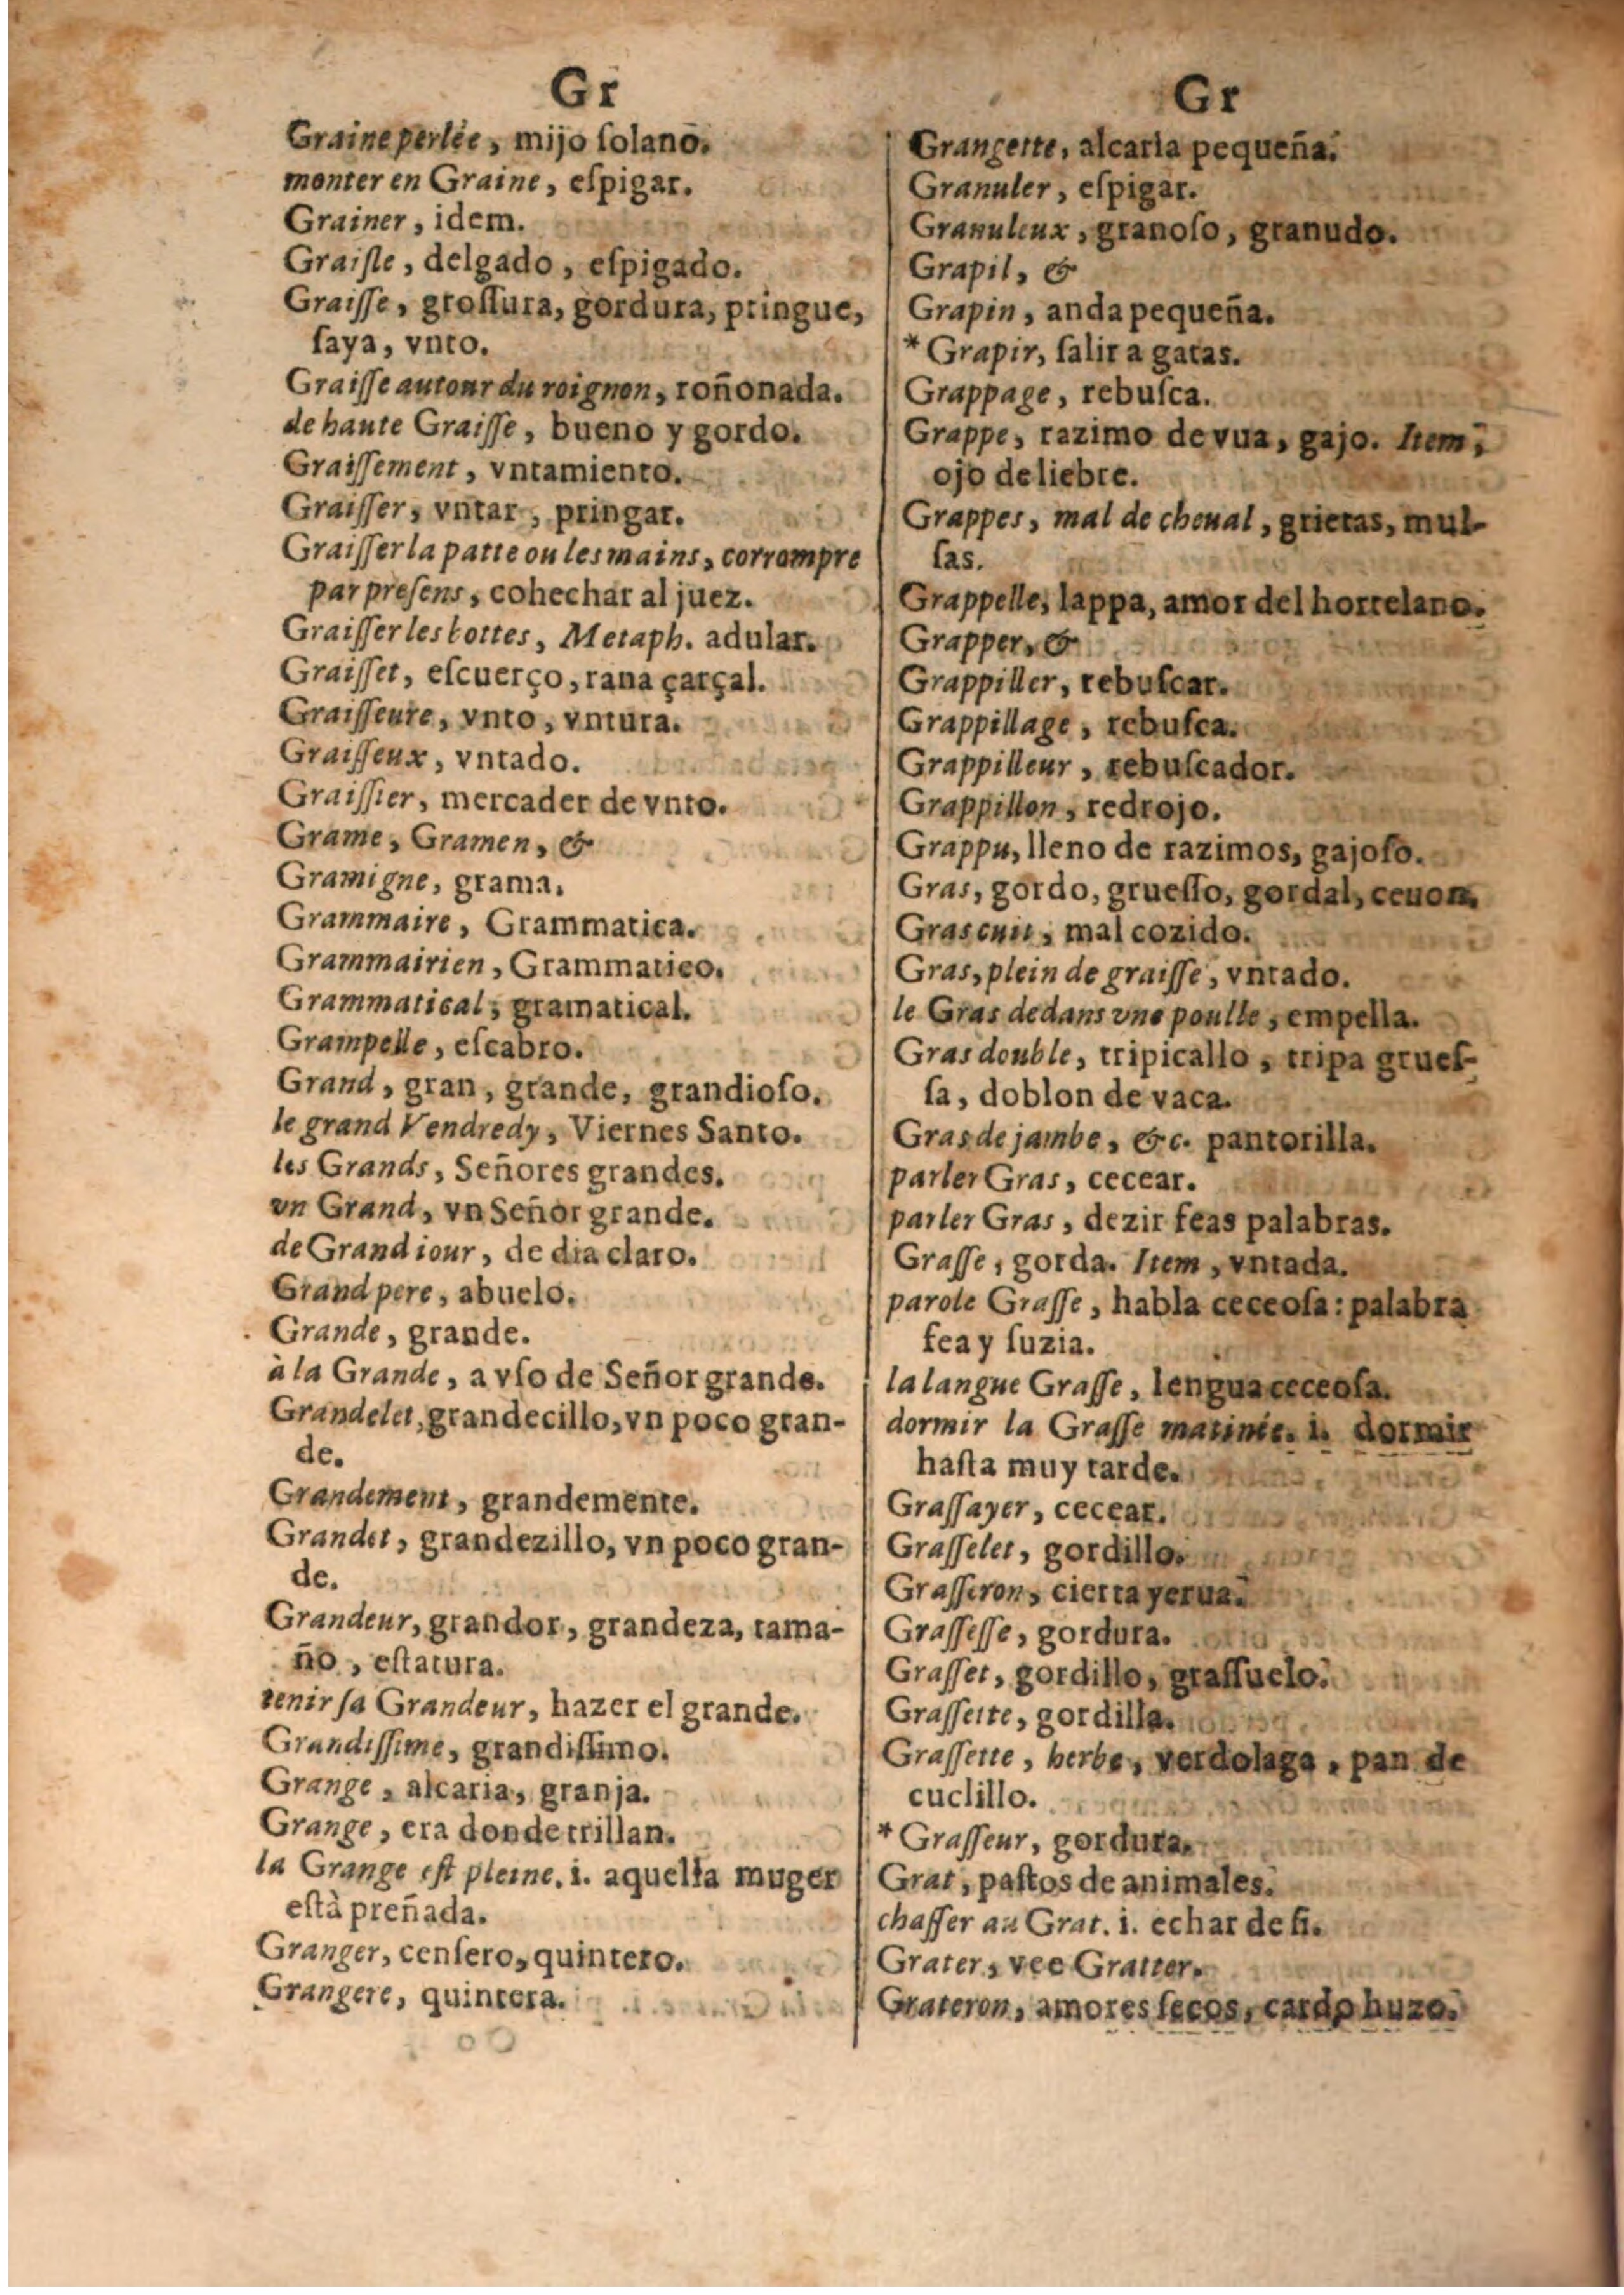 Gr
Graine perlée, mijo ſolano.
monter en Graine, eſpigar.
Grainer, idem.
Graiſle, delgado, eſpigado.
Graiſſe, groſſura, gordura, pringue,
ſaya, vnto.
Graiſſe autour du roignon, roñonada.
de haute Graiſſe, bueno y gordo.
Graiſſement, vntamiento.
Graiſſer, vntar, pringar.
Graiſſer la patte ou les mains, corrompre
par preſens, cohechar al juez.
Graiſſer les bottes, Metaph. adular.
Graiſſet, eſcuerço, rana çarçal.
Graiſſeure, vnto, vntura.
Graiſſeux, vntado.
Graiſſier, mercader de vnto.
Grame, Gramen, &
Gramigne, grama.
Grammaire, Grammatica.
Grammairien, Grammatico.
Grammatical, gramatical.
Grampelle, eſcabro.
Grand, gran, grande, grandioſo.
le grand Vendredy, Viernes Santo.
les Grands, Señores grandes.
vn Grand, vn Señor grande.
de Grand iour, de dia claro.
Grand pere, abuelo.
Grande, grande.
à la Grande, a vſo de Señor grande.
Grandelet, grandecillo, vn poco gran-
de.
Grandement, grandemente.
Grandet, grandezillo, vn poco gran-
de.
Grandeur, grandor, grandeza, tama-
ño, eſtatura.
tenir ſa Grandeur, hazer el grande.
Grandiſſime, grandiſſimo.
Grange, alcaria, granja.
Grange, era donde trillan.
la Grange eſt pleine. i. aquella muger
eſtà preñada.
Granger, cenſero, quintero.
Grangere, quintera.
Gr
Grangette, alcaria pequeña.
Granuler, eſpigar.
Granuleux, granoſo, granudo.
Grapil, &
Grapin, anda pequeña.
*Grapir, ſalir a gatas.
Grappage, rebuſca.
Grappe, razimo de vua, gajo. Item,
ojo de liebre.
Grappes, mal de cheual, grietas, mul-
ſas.
Grappelle, lappa, amor del hortelano.
Grapper, &
Grappiller, rebuſcar.
Grappillage, rebuſca.
Grappilleur, rebuſcador.
Grappillon, redrojo.
Grappu, lleno de razimos, gajoſo.
Gras, gordo, grueſſo, gordal, ceuon.
Gras cuit, mal cozido.
Gras, plein de graiſſe, vntado.
le Gras dedans vne poulle, empella.
Gras double, tripicallo, tripa grueſ-
ſa, doblon de vaca.
Gras de jambe, &c. pantorilla.
parler Gras, cecear.
parler Gras, dezir feas palabras.
Graſſe, gorda. Item, vntada.
parole Graſſe, habla ceceoſa: palabra
fea y ſuzia.
la langue Graſſe, lengua ceceoſa.
dormir la Graſſe matinée. i. dormir
haſta muy tarde.
Graſſayer, cecear.
Graſſelet, gordillo.
Graſſeron, cierta yerua.
Graſſeſſe, gordura.
Graſſet, gordillo, graſſuelo.
Graſſette, gordilla.
Graſſette, herbe, verdolaga, pan de
cuclillo.
*Graſſeur, gordura.
Grat, paſtos de animales.
chaſſer au Grat. i. echar de ſi.
Grater, vee Gratter.
Grateron, amores ſecos, cardo huzo.